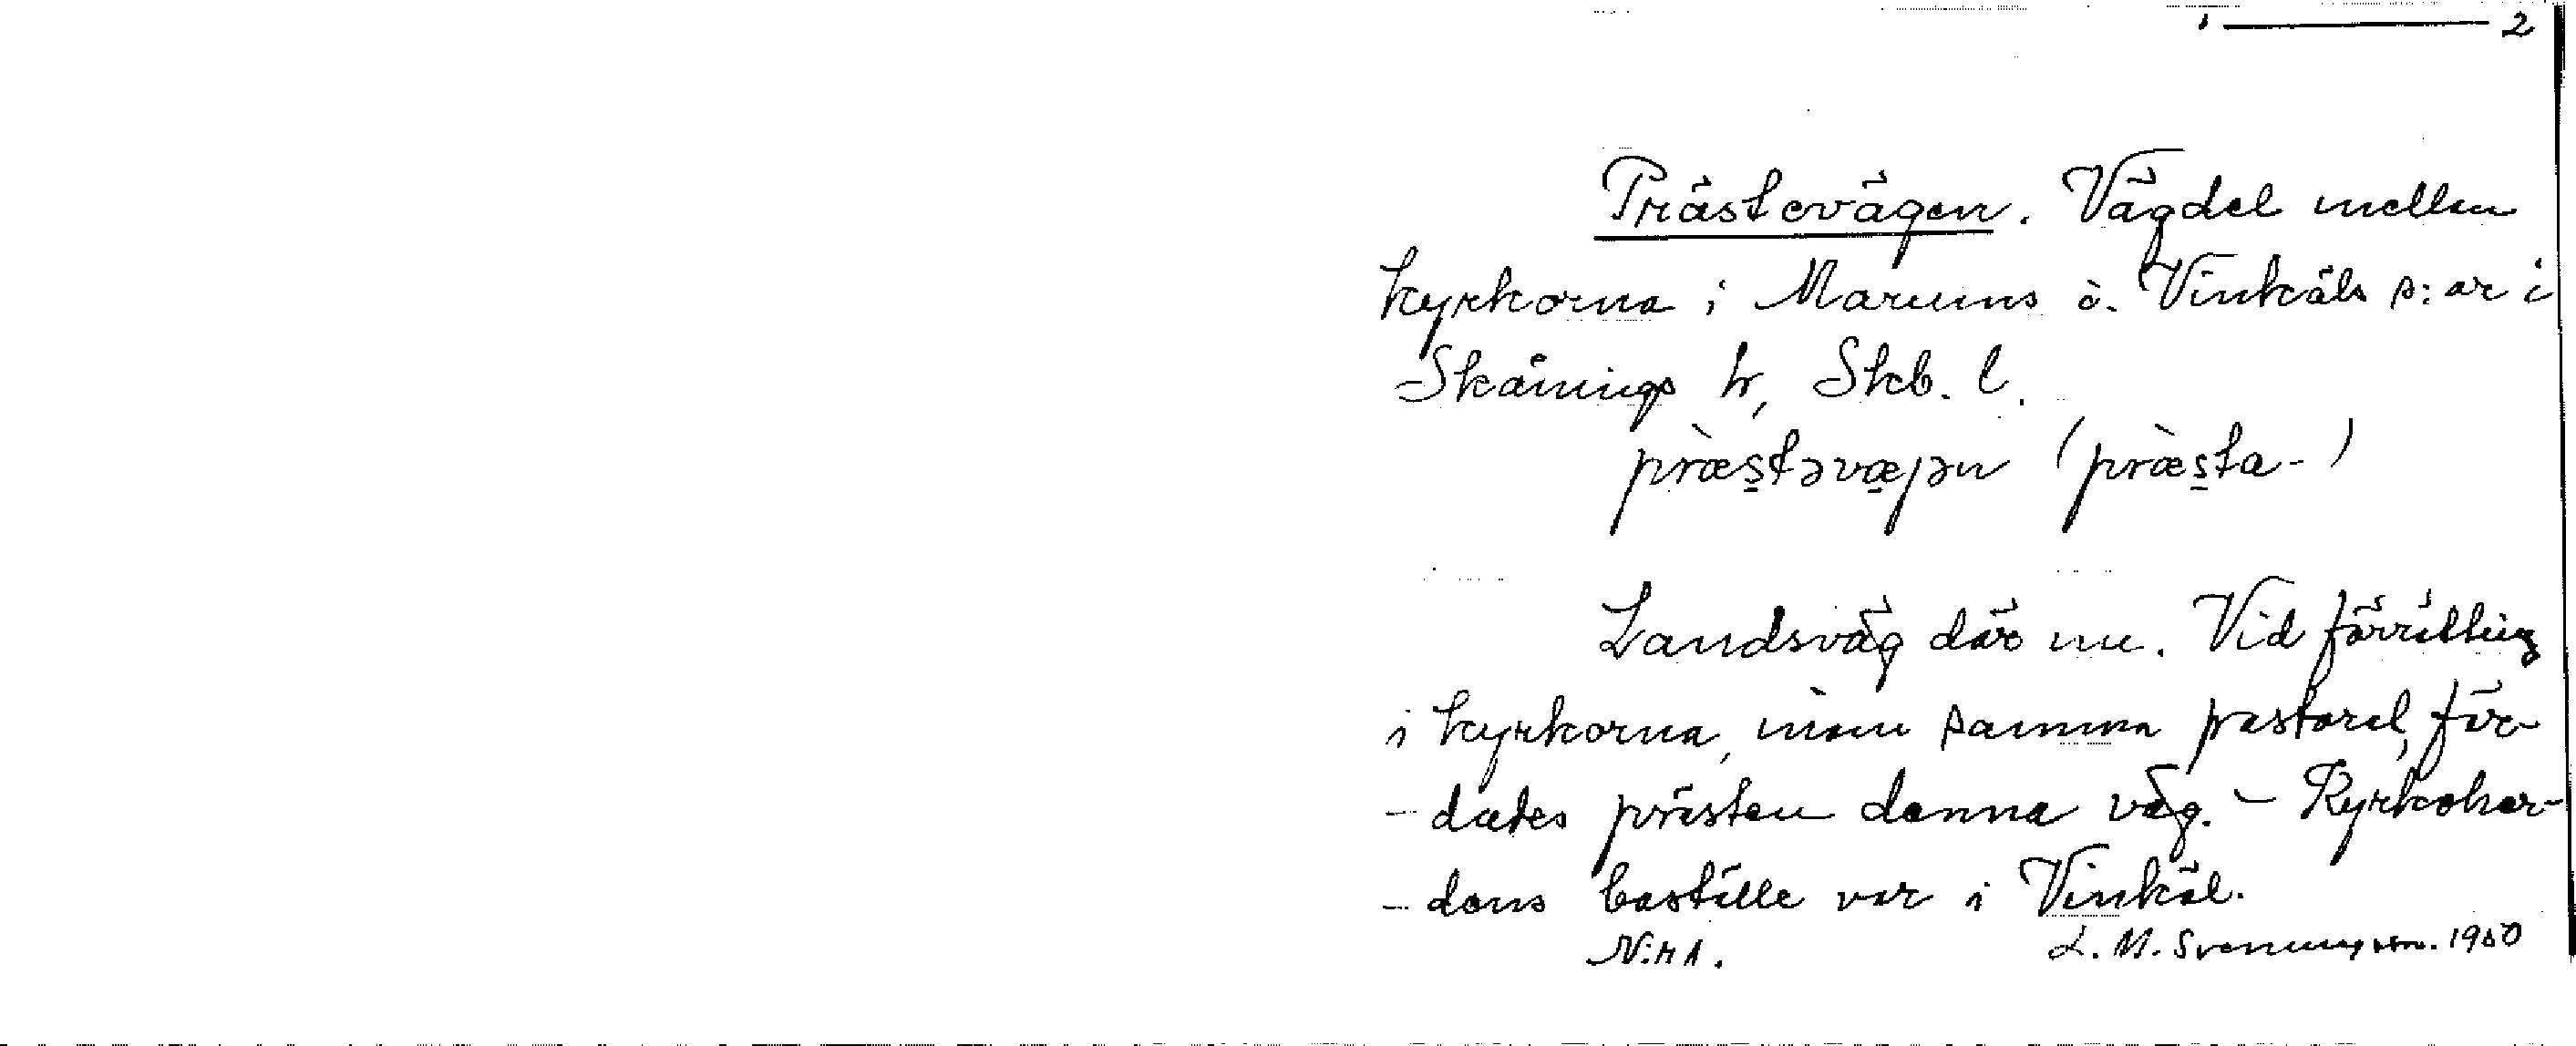 2
Prästevägen. Vägdel mellan
kyrkorna i Marums o. Vinköls s:ar i
Skånings hr, Skb. l.
præ̀stəvæɟən (præ̀sta-)
Landsväg där nu. Vid förrättning
i kyrkorna, inom samma pastorat, för-
-dades prästen denna väg. - Kyrkoher-
-dens boställe var i Vinköl.
L. M. Svenungsson. 1950